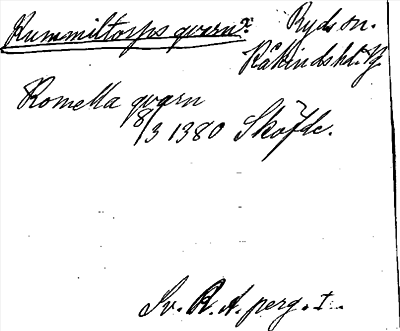 Rummiltorps qvarn x. Ryds sn.
Kåkinds hd. Vg
Romella qvarn
8/3 1380 Sköfde.
Sv. R. A. perg. I.